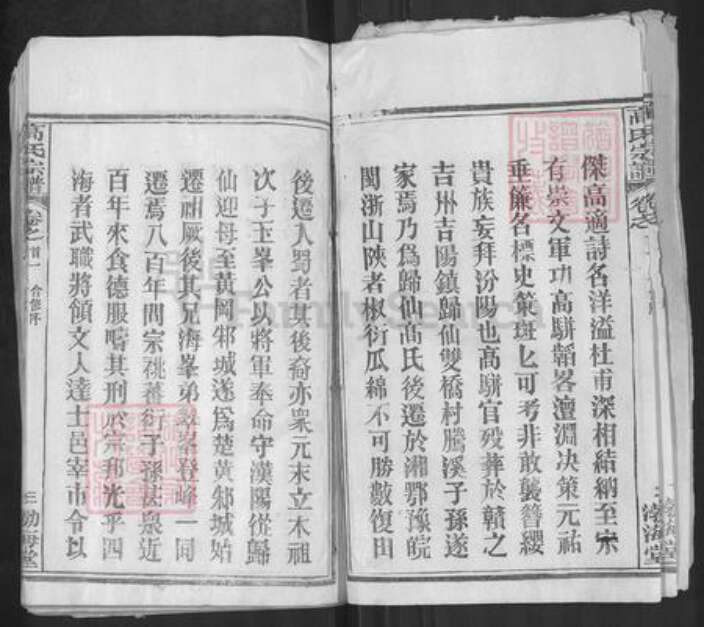 高氏宗譜
卷之首
傑高適詩名洋溢杜甫深相結納至宋
有崇文軍功高駢韜畧澶淵决策元祐
垂簾名標史策斑匕可考非敢襲簪纓
貴族妄拜汾陽也高駢官殁葬於贛之
吉州吉陽鎮歸仙雙橋村騰溪子孫遂
家焉乃爲歸仙高氏後遷於湘鄂豫皖
閩浙山陝者椒衍瓜綿不可勝數復由
渤海堂
後遷入蜀者其後裔亦衆元末立木祖
次子玉峯公以將軍奉命守漢陽從歸
仙迎母至黃岡邾城遂爲楚黃邾城始
遷祖厥後其兄海峯弟 峯登峰一同
遷焉八百年間宗祧蕃衍子孫甚衆近
百年來食德服疇其刑於宗邦光乎四
海者武職將領文人達士邑宰市令以
高氏宗譜
卷之首一
合修序
三 渤海堂
FamilySearch